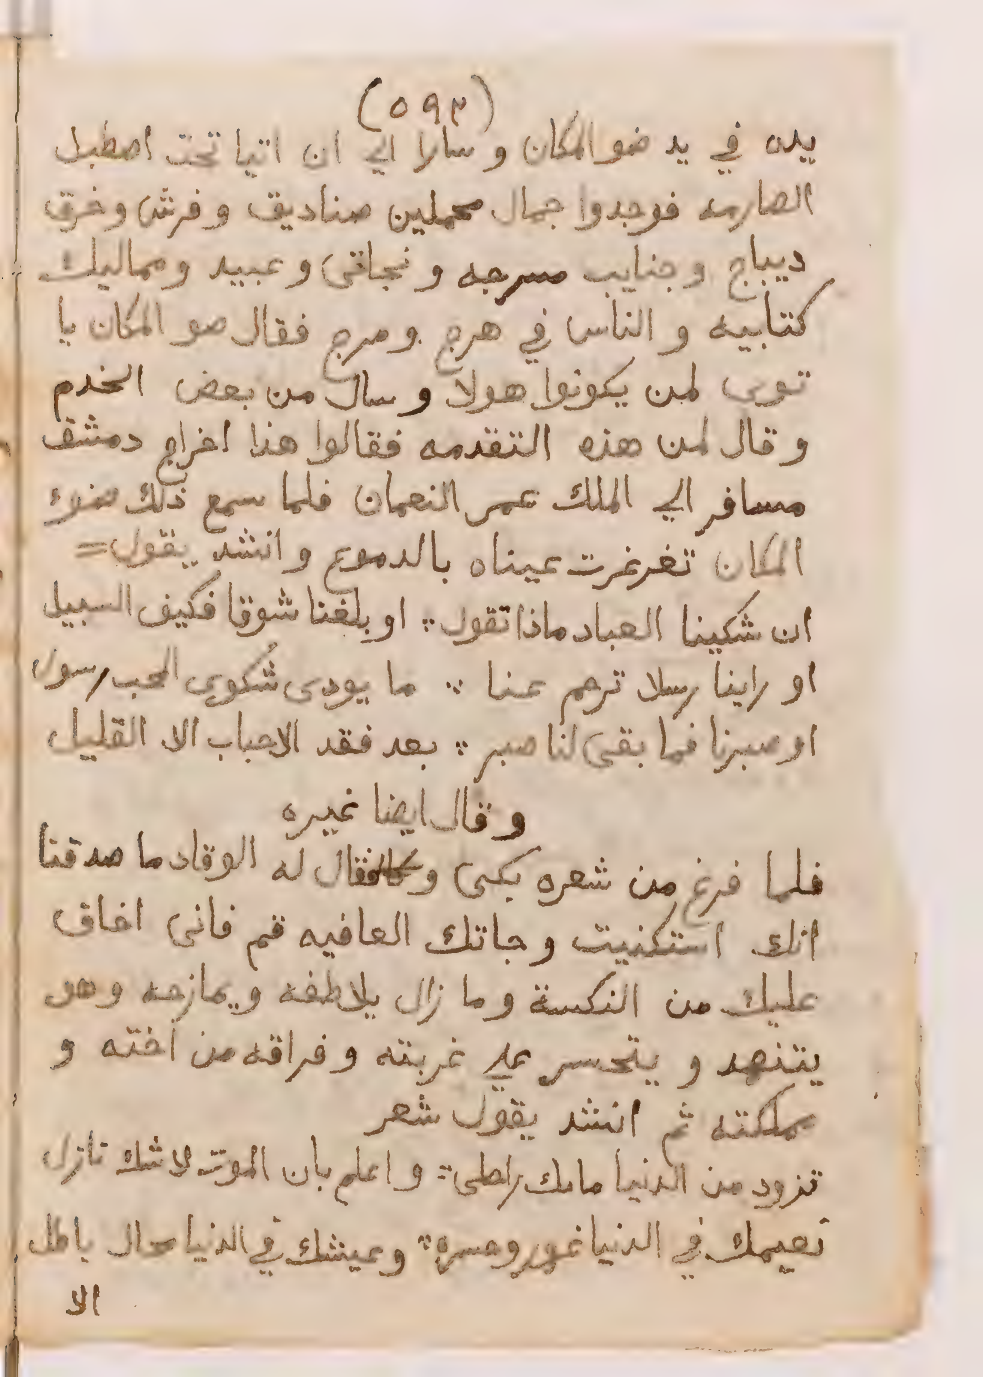 (٥٩٣)
يده في يد ضو المكان و سارا الي ان اتيا تحت اصطبل
الصارمه فوجدوا جمال محملين صناديق و فرش و خرق
ديباج و جنايب مسرجه و نجاتى و عبيد و مماليك
كتابيه و الناس في هرج و مرج فقال ضو المكان يا
توي لمن يكونوا هولا و سال من بعض الخدم
و قال لمن هذه التقدمه فقالوا هذا اخراج دمشق
مسافر الي الملك عمر النعمان فلما سمع ذلك ضوء
المكان تغرغرت عيناه بالدموع و انشد يقول=
ان شكينا العباد ماذا تقول ∴ او بلغنا شوقا فكيف السبيل
او راينا رسلا ترحم عنا ∴ ما يودى شكوى المحب رسول
او صبرنا فما بقى لنا صبر ∴ بعد فقد الاحباب الا القليل
و قال ايضا غيره
فلما فرغ من شعره بكى فقال له الوقاد ما صدقنا
انك استكنيت و جاتك العافيه قم فانى اخاف
عليك من النكسة و ما زال يلاطفه و يمازحه و هو
يتنهد و يتحسر علي غربته و فراقه من اخته و
مملكته ثم انشد يقول شعر
تزود من الدنيا فانك راحلى ∴ و اعلم بان الموت لا شك نازل
نعيمك في الدنيا غرور و حسره ∴ و عيشك في الدنيا محال باطل
الا